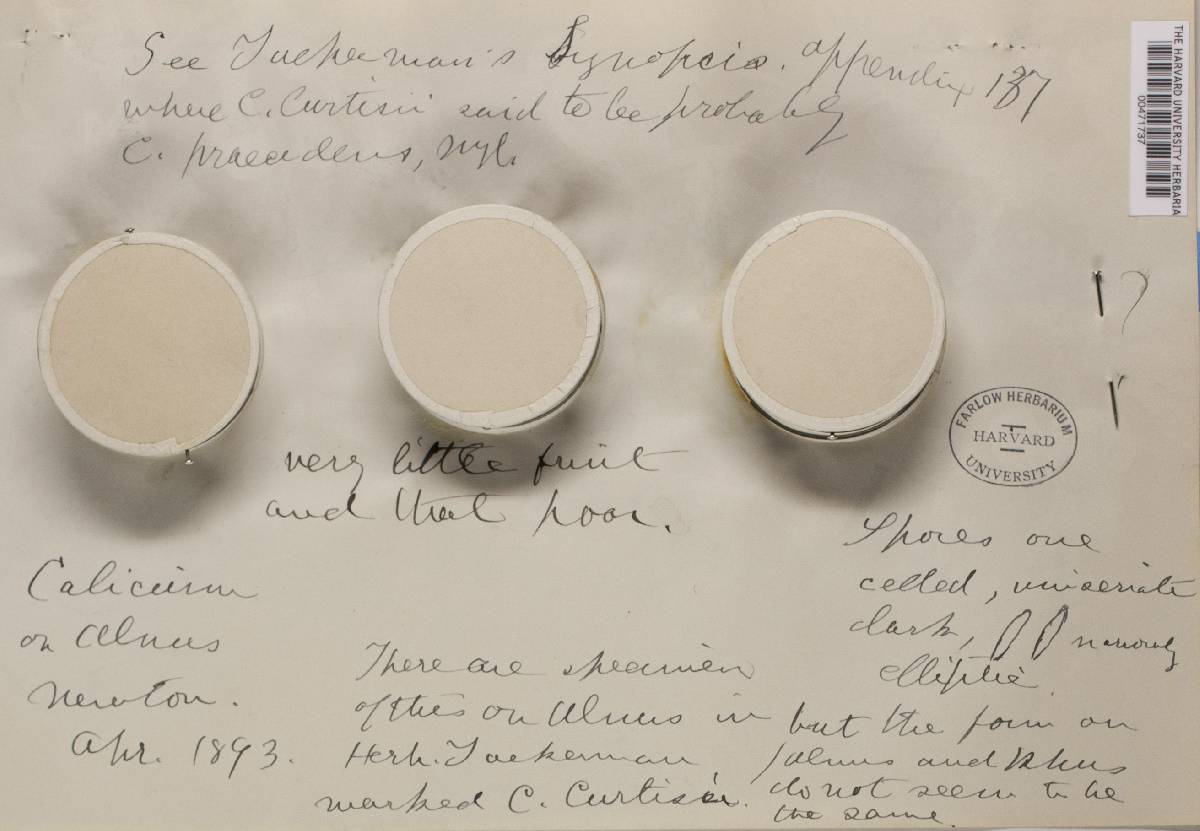 See Tuckerman's Synopsis. appendix 137
where C. Curtisii said to be probably
C. praecedens, Nyl.
THE HARVARD UNIVERSITY HERBARIA
00471737
?
FARLOW HERBARIUM
HARVARD
UNIVERSITY
very little fruit
and that poor.
Calicium
on Alnus
Newton.
Apr. 1893.
There are specimen
of this on Alnus in
Herb. Tuckerman
marked C. Curtisii.
Spores one
celled, uniseriate
dark, narrowly
elliptic.
but the form on
Alnus and Rhus
do not seem to be
the same.